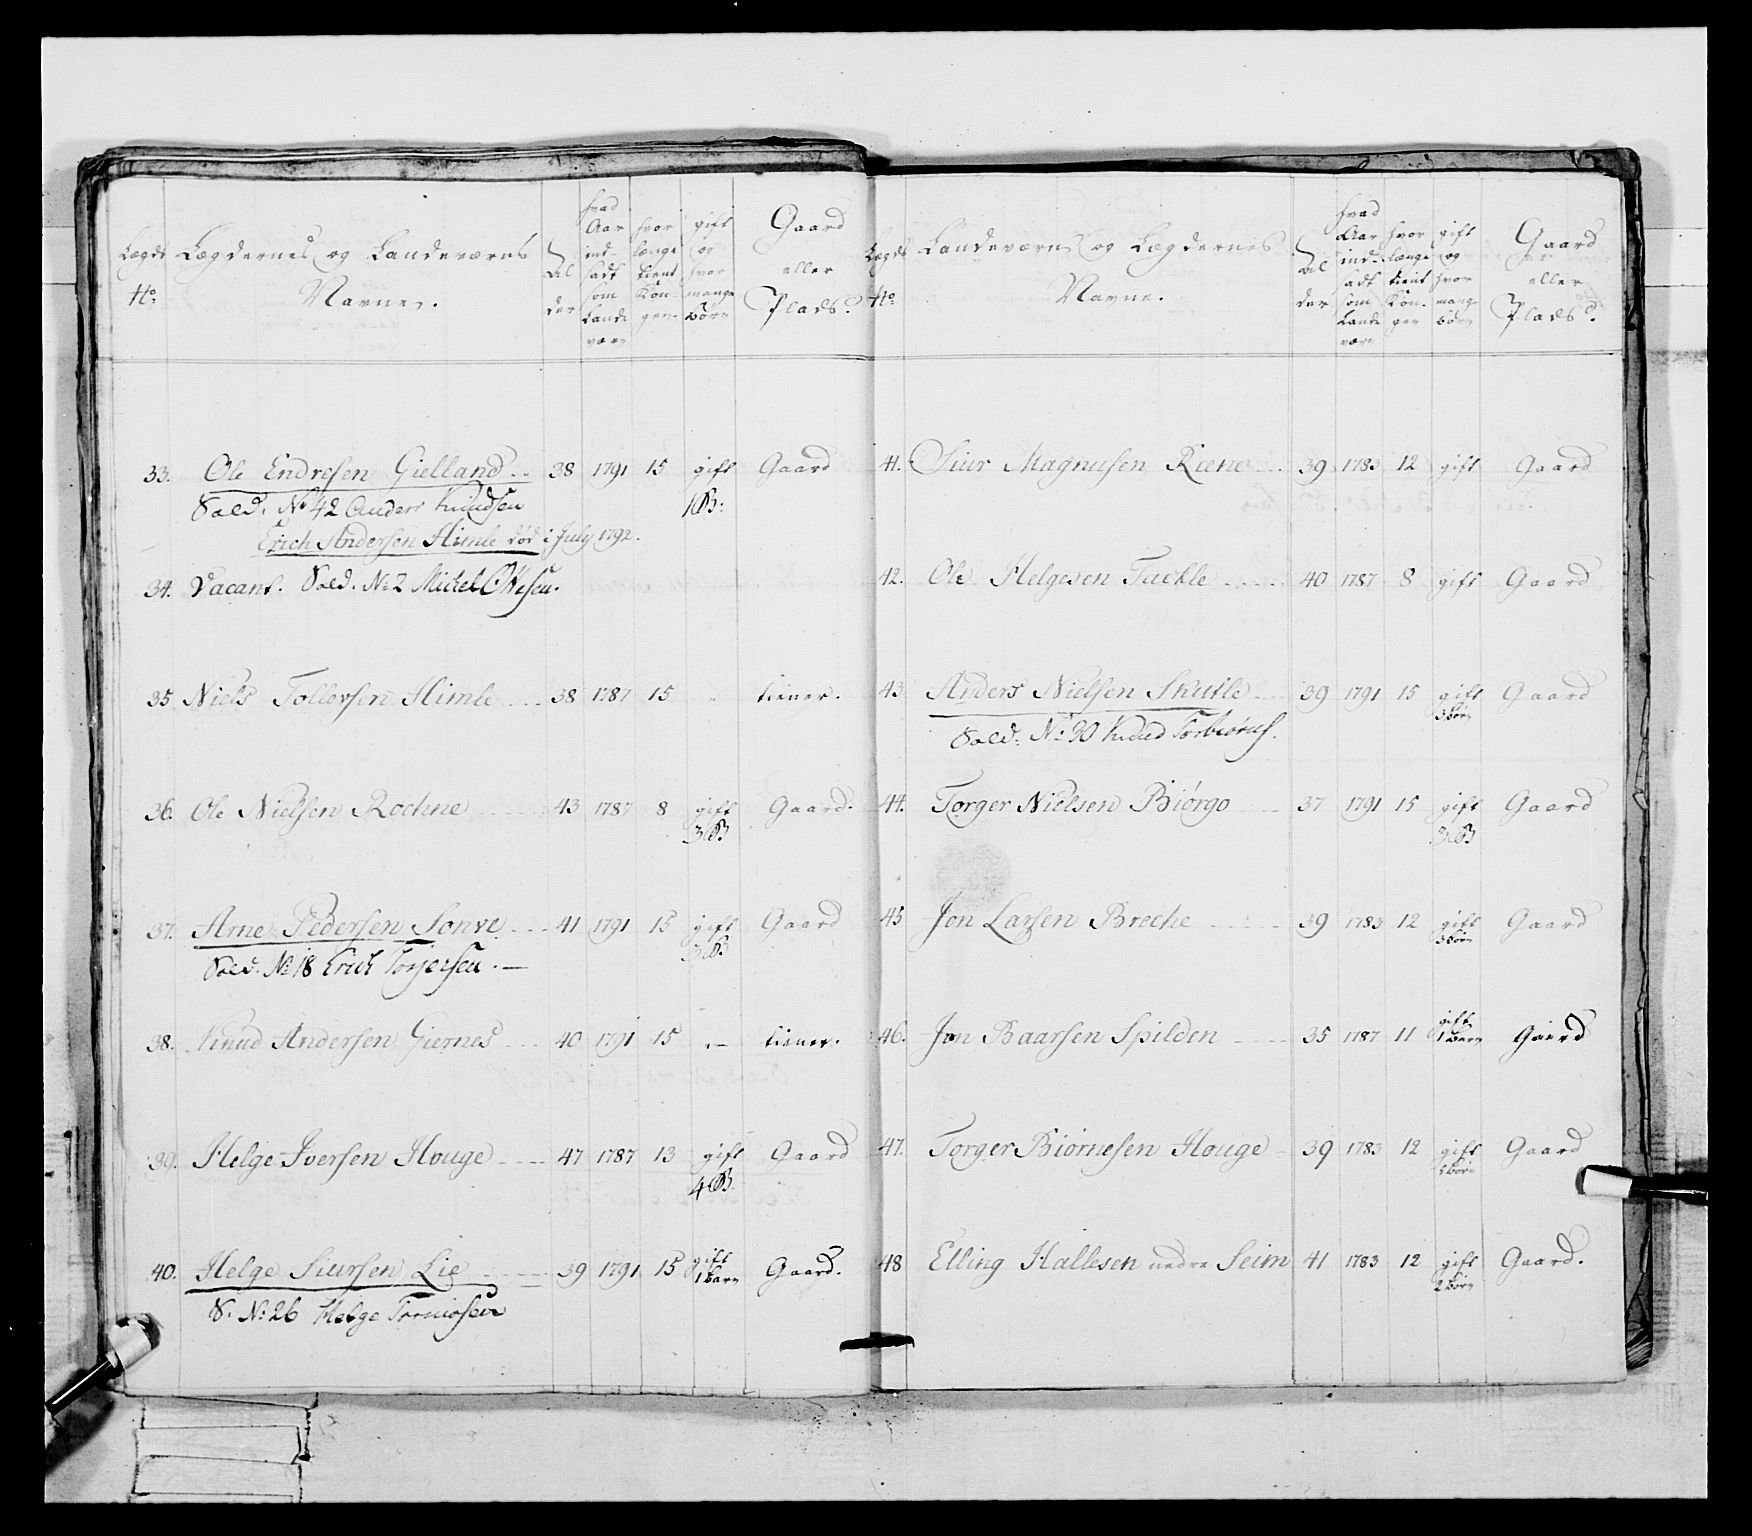 Lægds No.
Lægdernes og Landeværns Navne.
Alder
hvad Aar indsadt som Landeværn
hvor længe tient Kongen
gift og hvor mange børn
Gaard eller Plads.
33. Ole Endresen Gielland 38 1791 15 gift Gaard
Sold. No 42 Anders Knudsen 1 B:
Erich Andersen Himle død i July 1792.
34. Vacant. Sold. No 2 Michel
35 Niels Tollevsen Himle 38 1787 15 " tiener.
36. Ole Nielsen Rochne 43 1787 8 gift Gaard.
3 B
37. Arne Pedersen Sonve 41 1791 15 gift Gaard
3 B.
Sold. No 18 Erich Torjersen.
38. Knud Andersen Giernes 40 1791 15 " tiener.
39. Helge Iversen Houge 47 1787 13 gift Gaard
4 B.
40. Helge Siursen Lie 39 1791 15 gift Gaard.
1 barn
S. No 26 Helge
Lægds No.
Landeværns og Lægdernes Navne.
Alder
hvad Aar indsadt som Landeværn
hvor længe tient Kongen
gift og hvor mange børn
Gaard eller Plads.
41. Siur Magnusen Ræne 39 1783 12 gift Gaard
42. Ole Helgesen Tackle 40 1787 8 gift Gaard
43. Anders Nielsen Skutle 39 1791 15 gift Gaard
3 børn
Sold: No 30 Knud Torbiørns.
44. Torger Nielsen Biørgo 37 1791 15 gift Gaard
3 B
45 Jon Larsen Breche 39 1783 12 gift Gaard
3 børn
46. Jon Baarsen Spilden 35 1787 11 gift Gaard
1 barn
47. Torger Biørnesen Houge 39 1783 12 gift Gaard
børn
48 Elling Hallesen nedre Seim 41 1783 12 gift Gaard.
2 børn